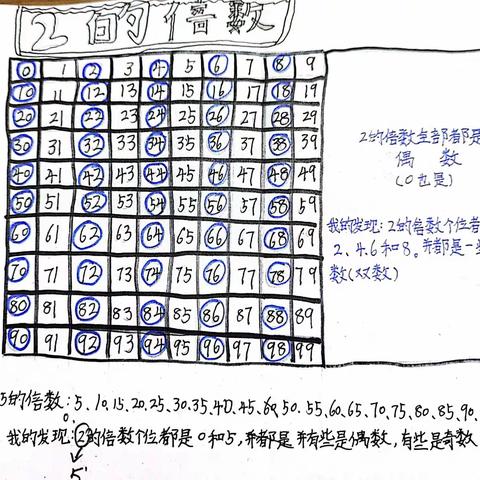 2的倍数
0 1 2 3 4 5 6 7 8 9
10 11 12 13 14 15 16 17 18 19
20 21 22 23 24 25 26 27 28 29
30 31 32 33 34 35 36 37 38 39
40 41 42 43 44 45 46 47 48 49
50 51 52 53 54 55 56 57 58 59
60 61 62 63 64 65 66 67 68 69
70 71 72 73 74 75 76 77 78 79
80 81 82 83 84 85 86 87 88 89
90 91 92 93 94 95 96 97 98 99
2的倍数全部都是
偶数
(0也是)
我的发现:2的倍数个位
2、4.6和8。并都是一些
数(双数)
5的倍数:5、10、15、20、25、30、35、40、45、50、55、60、65、70、75、80、85、90、
0
我的发现:2的倍数个位都是0和5,并都是并有些是偶数,有些是奇数
5